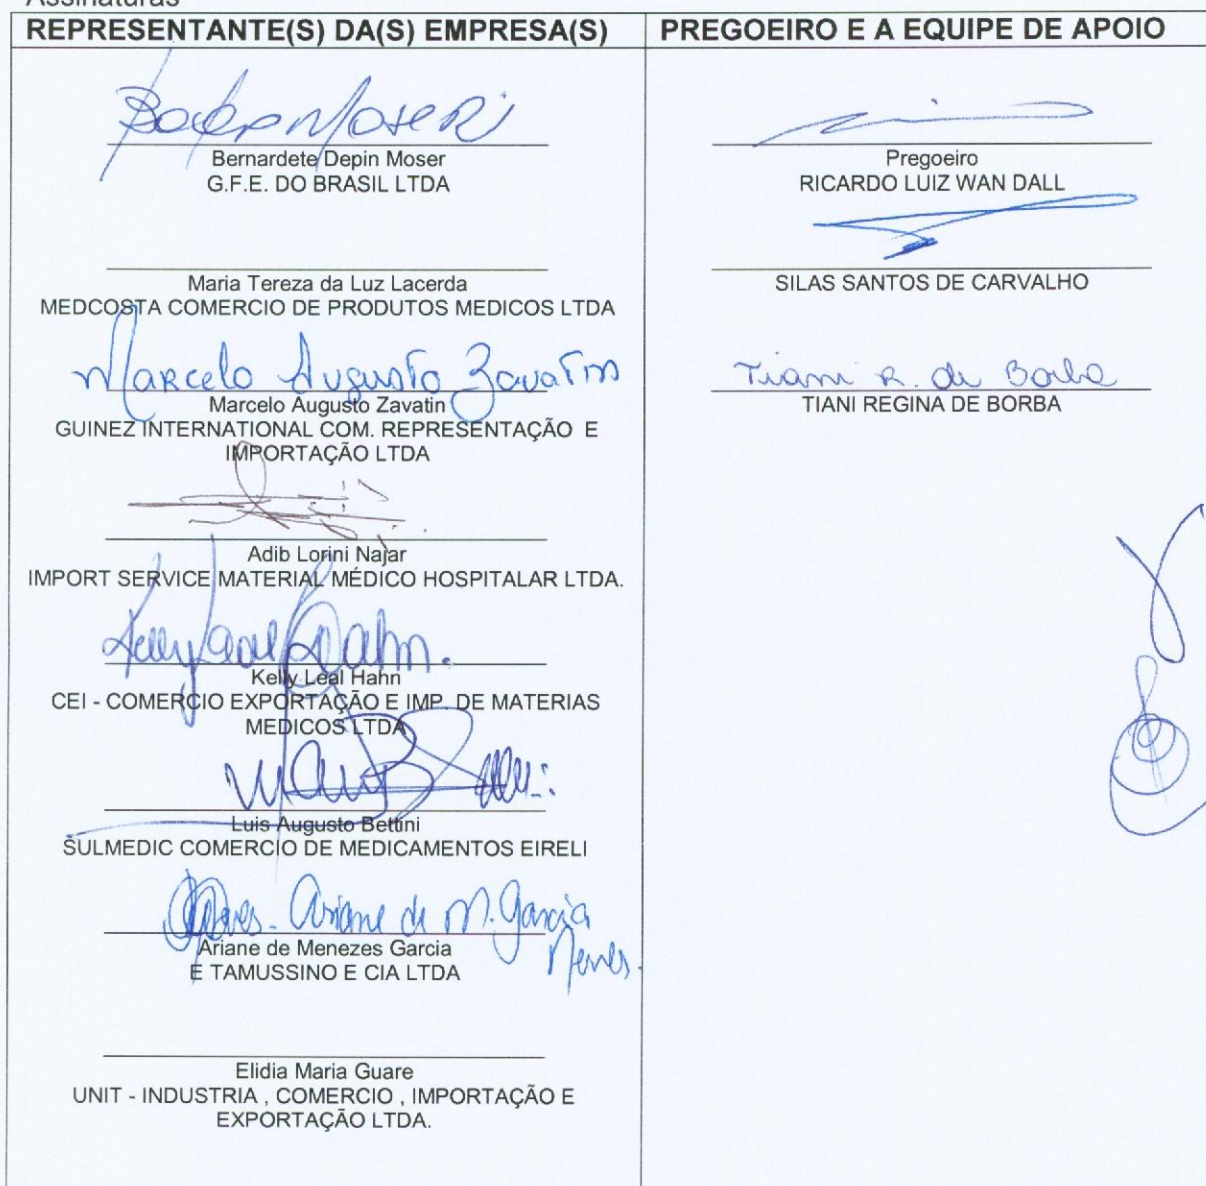 Assinaturas
REPRESENTANTE(S) DA(S) EMPRESA(S)
Bernardete Depin Moser
G.F.E. DO BRASIL LTDA
Maria Tereza da Luz Lacerda
MEDCOSTA COMERCIO DE PRODUTOS MEDICOS LTDA
Marcelo Augusto Zavatin
Marcelo Augusto Zavatin
GUINEZ INTERNATIONAL COM. REPRESENTAÇÃO E
IMPORTAÇÃO LTDA
Adib Lorini Najar
IMPORT SERVICE MATERIAL MÉDICO HOSPITALAR LTDA.
Kelly Leal Hahn.
Kelly Leal Hahn
CEI - COMERCIO EXPORTAÇÃO E IMP. DE MATERIAS
MEDICOS LTDA
Luis Augusto Bettini
SULMEDIC COMERCIO DE MEDICAMENTOS EIRELI
Ariane de M. Garcia
Neves.
Ariane de Menezes Garcia
E TAMUSSINO E CIA LTDA
Elidia Maria Guare
UNIT - INDUSTRIA , COMERCIO , IMPORTAÇÃO E
EXPORTAÇÃO LTDA.
PREGOEIRO E A EQUIPE DE APOIO
Pregoeiro
RICARDO LUIZ WAN DALL
SILAS SANTOS DE CARVALHO
Tiani R. de Borba
TIANI REGINA DE BORBA